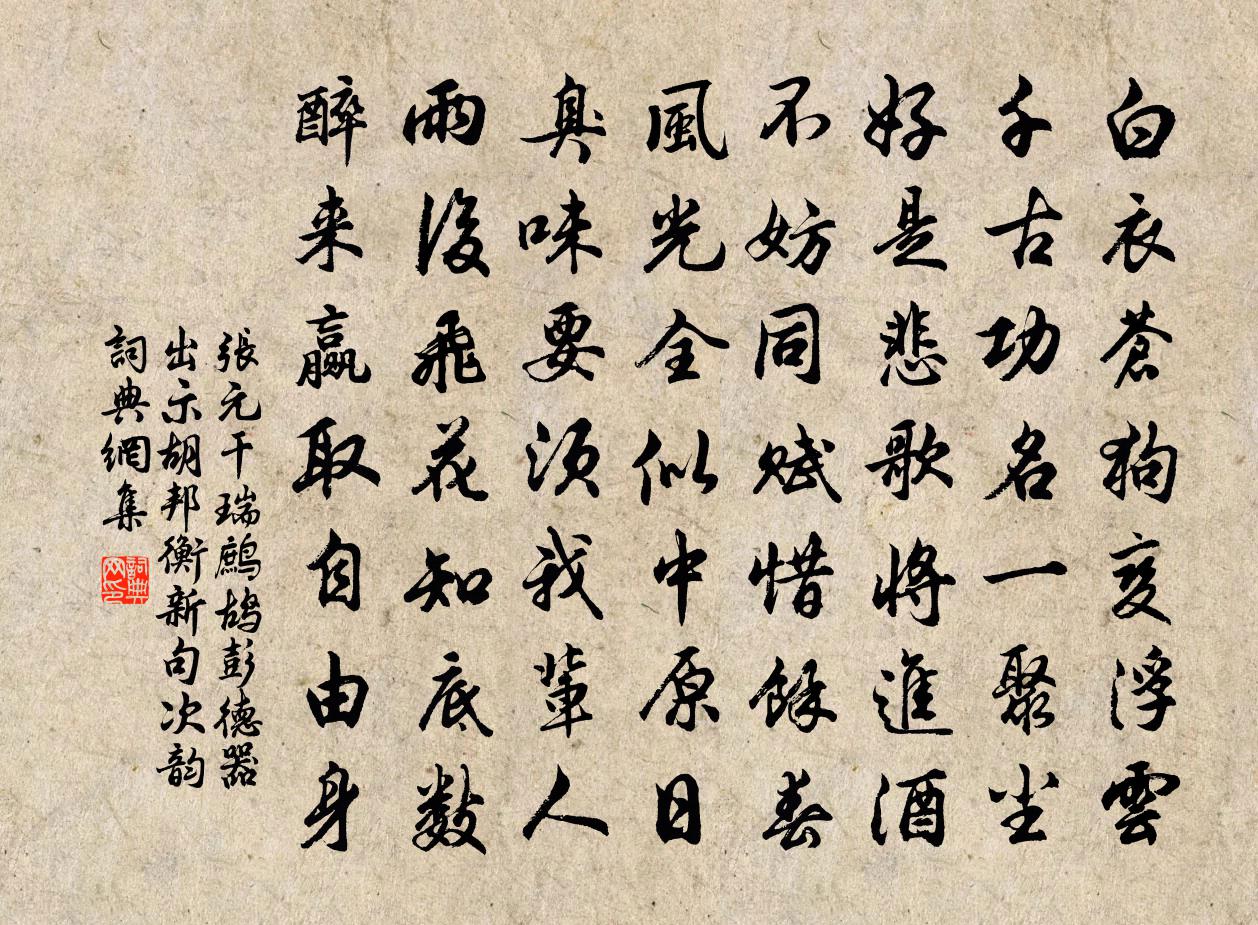 白衣蒼狗变浮雲
千古功名一聚尘
好是悲歌將進酒
不妨同赋惜餘春
風光全似中原日
臭味要須我輩人
雨後飛花知底数
醉来贏取自由身
張元干瑞鷓鴣彭德器
出示胡邦衡新句次韵
詞典網集
詞典网印